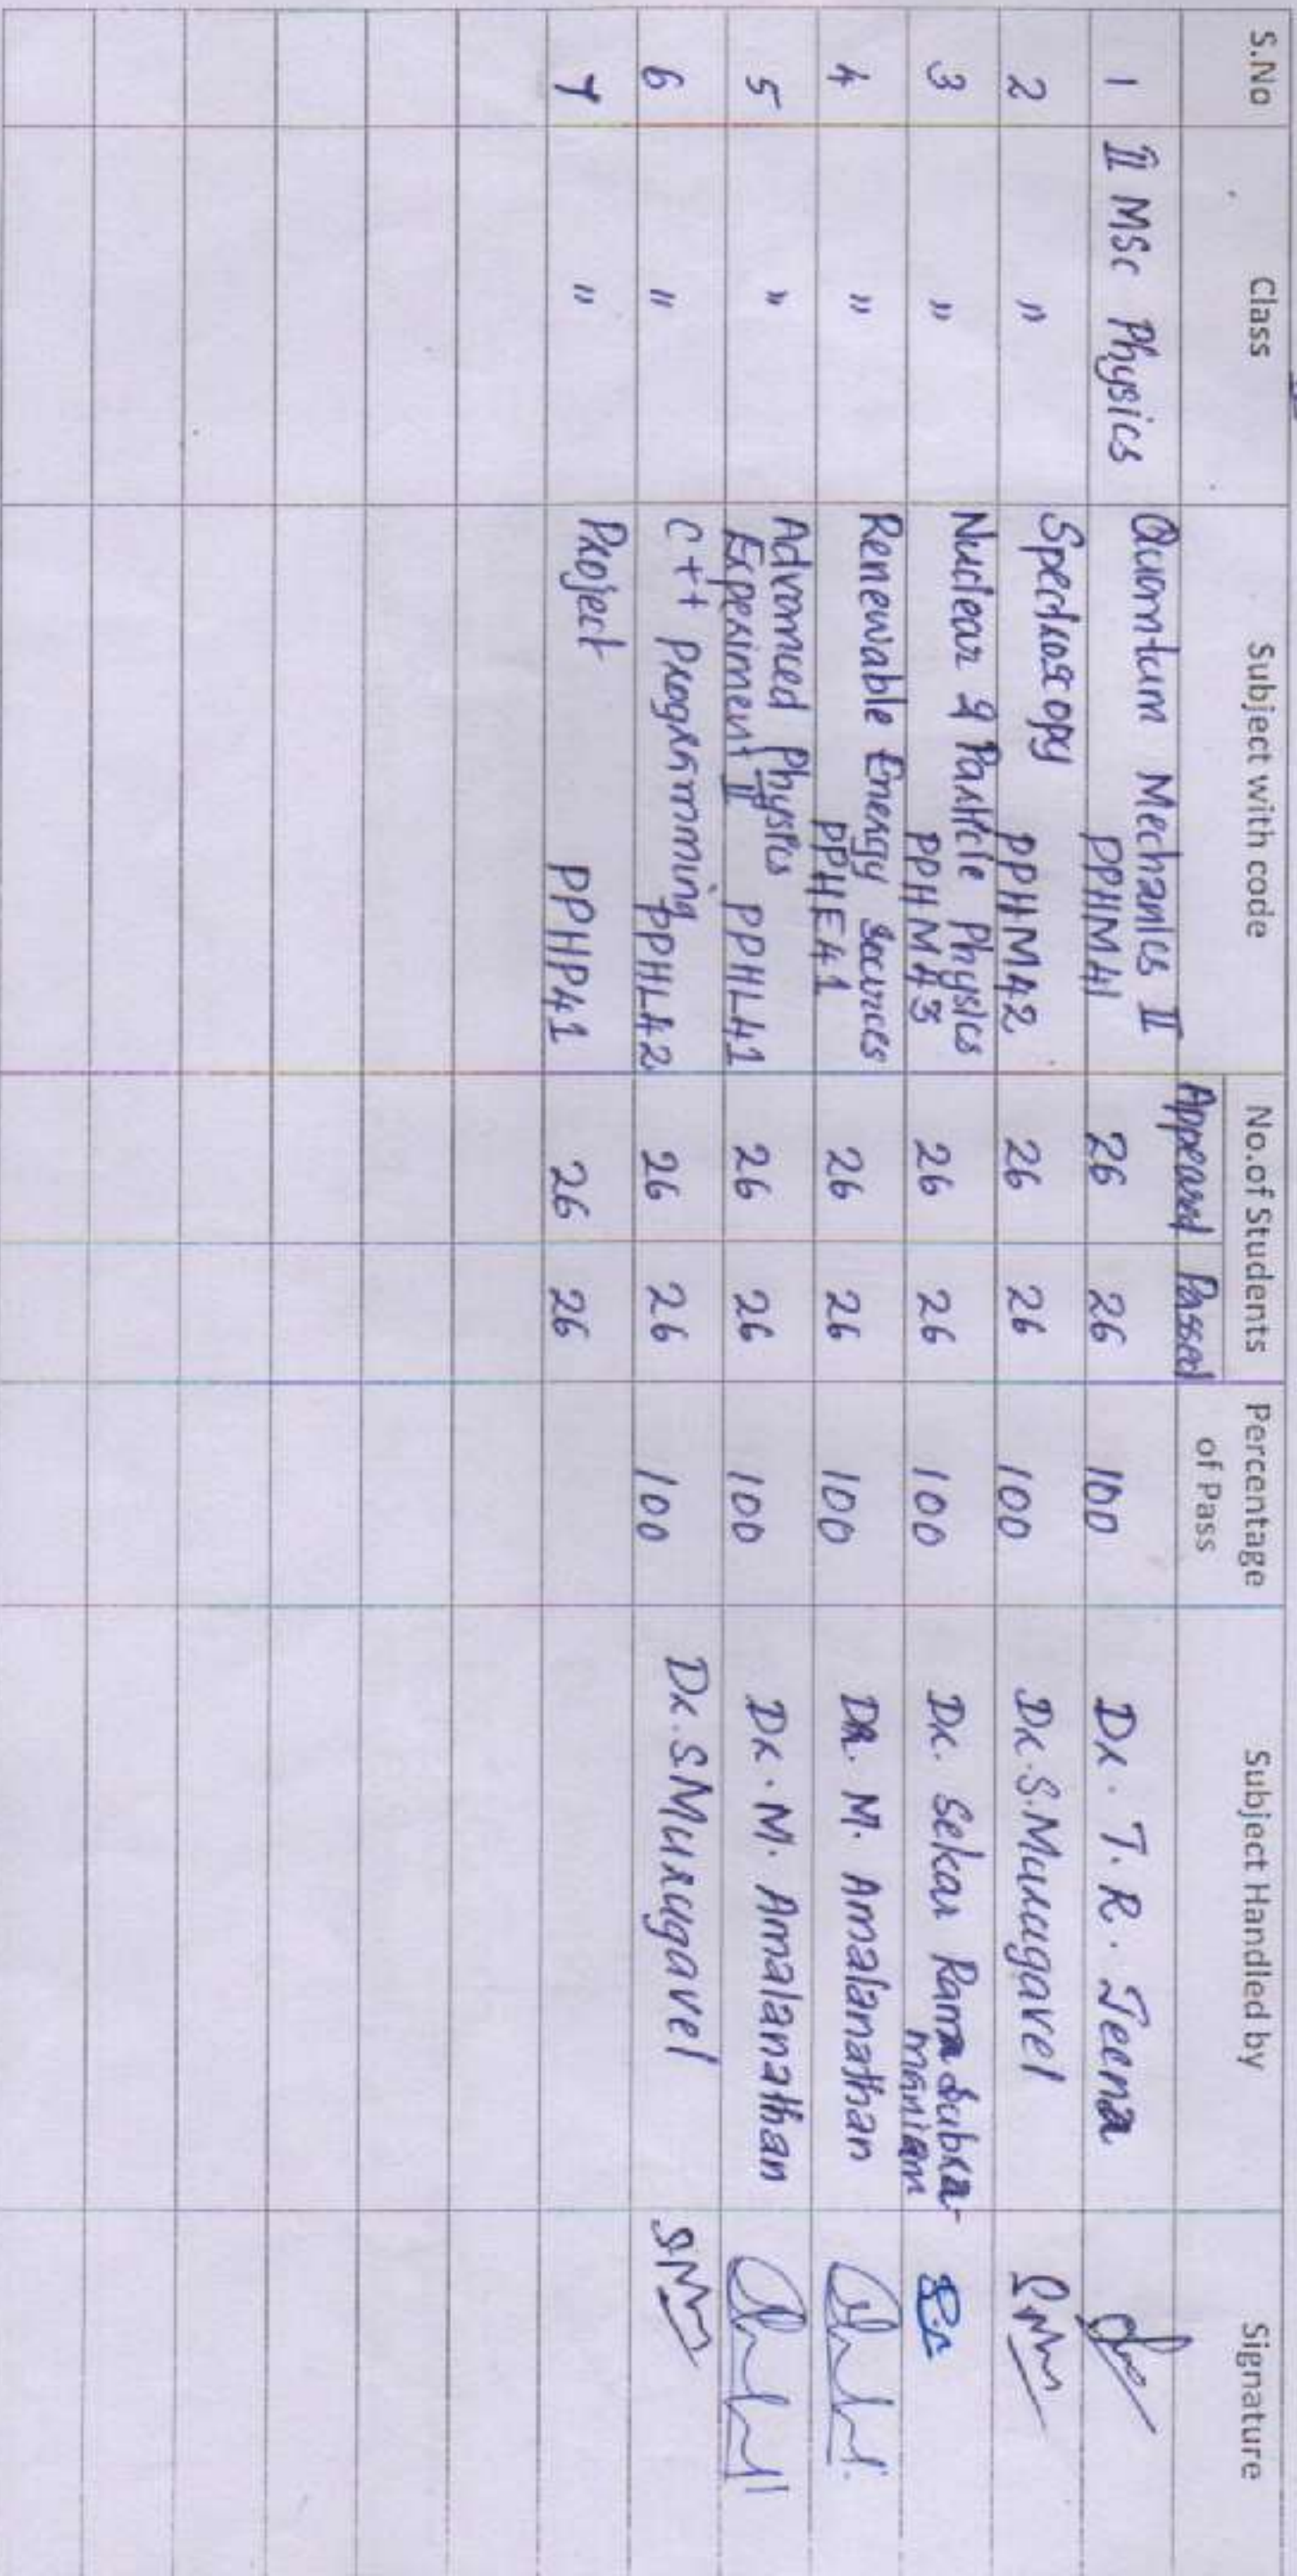 S.No Class Subject with code No.of Students Percentage of Pass Subject Handled by Signature
Appeared Passed
1 II MSc Physics Quantum Mechanics II PPHM41 26 26 100 Dr. T. R. Jeena
2 " Spectroscopy PPHM42 26 26 100 Dr. S. Murugavel
3 " Nuclear & Particle Physics PPHM43 26 26 100 Dr. Sekar Rama Subra-
maniam
4 " Renewable Energy Sources PPHE41 26 26 100 DR. M. Amalanathan
5 " Advanced Physics
Experiment II PPHL41 26 26 100 Dr. M. Amalanathan
6 " C++ Programming PPHL42 26 26 100 Dr. S Murugavel
7 " Project PPHP41 26 26